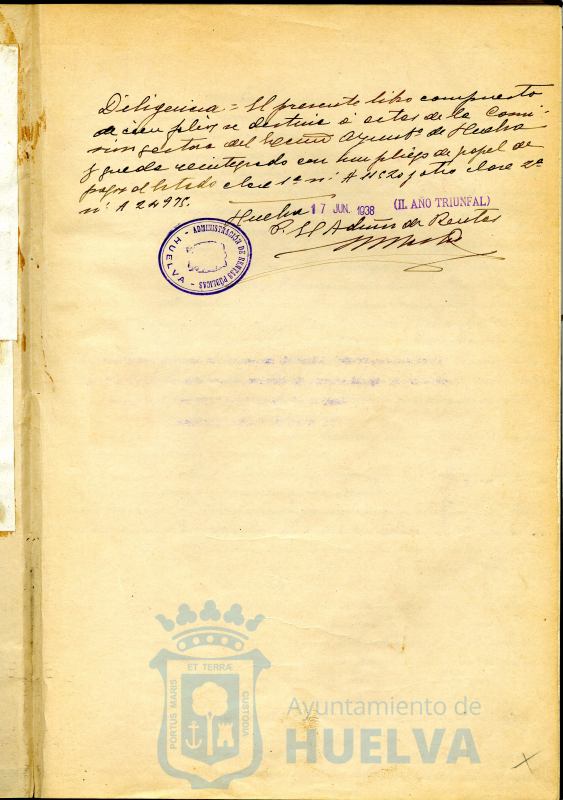 Diligencia = El presente libro compuesto
de cien folios se destina á actas de la Comi-
sion gestora del Excmo Ayuntº de Huelva
y queda reintegrado con un pliego de papel de
pagos al Estado clase 1ª nº A y otro clase 2ª
nº A 24975.
Huelva 17 JUN. 1938 (II. AÑO TRIUNFAL)
P. El Admor de Rentas
ADMINISTRACIÓN DE RENTAS PÚBLICAS - HUELVA -
ET TERRÆ
PORTUS MARIS
CUSTODIA
Ayuntamiento de
HUELVA